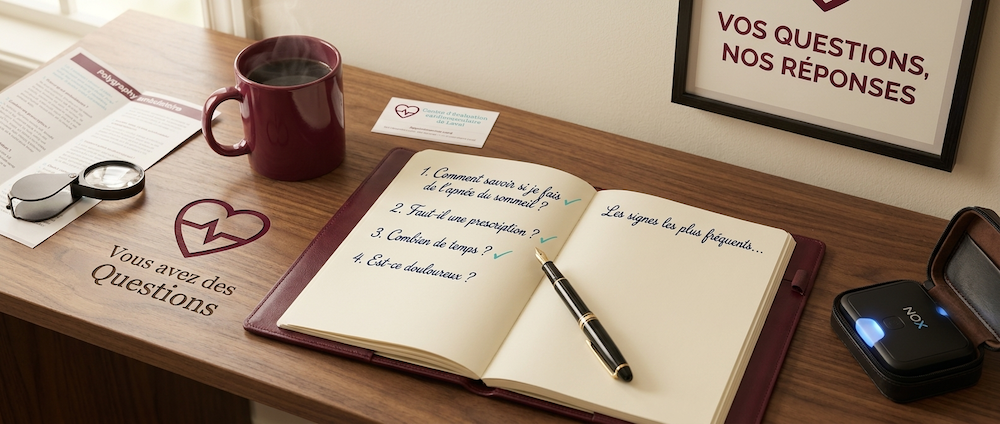 VOS QUESTIONS,
NOS RÉPONSES
Polygraphy ambulatoire
Centre d'évaluation
cardiovasculaire
de Laval
1. Comment savoir si je fais
de l'apnée du sommeil ?
2. Faut-il une prescription ?
3. Combien de temps ?
4. Est-ce douloureux ?
Les signes les plus fréquents...
Vous avez des
Questions
NOX